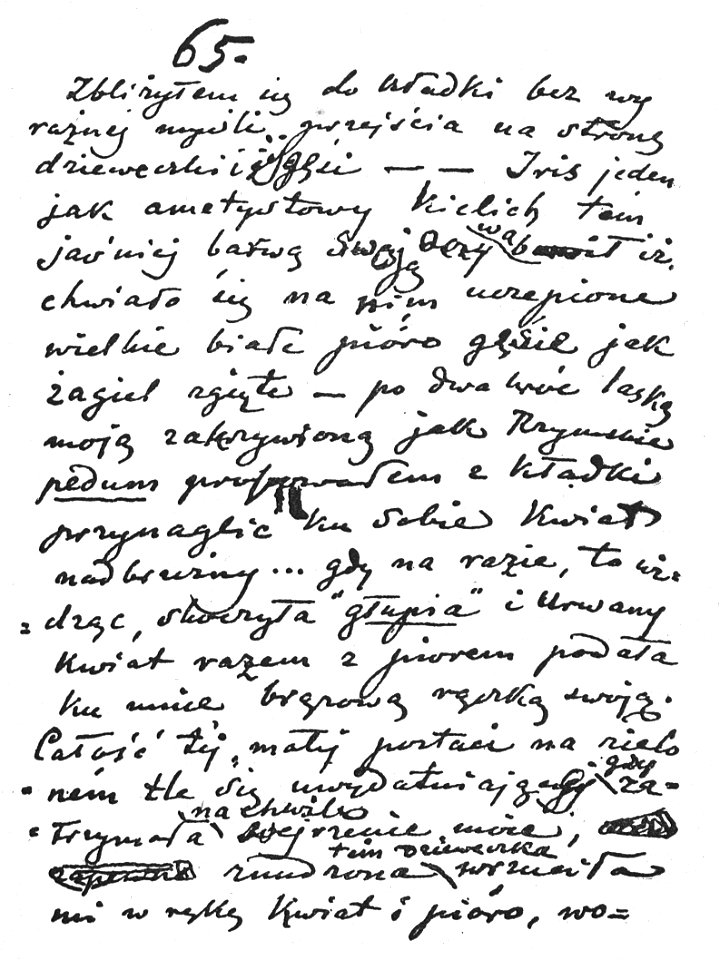 65.
Zbliżyłem się do kładki bez wy
raźnej myśli przejścia na stronę
dzieweczki i gęsi — — Iris jeden
jak ametystowy kielich tém
jaśniej barwą swoją oczy wabił iż
chwiało się na nim uczepione
wielkie białe pióro gęsie jak
żagiel zgięte — po dwakroć laską
moją zakrzywioną jak Rzymskie
pedum z kładki
przynaglić ku sobie kwiat
nadbrzeżny... gdy na razie, to wi=
=dząc, skoczyła "głupia" i urwany
kwiat razem z piórem podała
ku mnie brązową rączką swoją.
Całość téj małéj postaci na zielo
=ném tle się uwydatniającéj gdy za=
=trzymała na chwilę wejrzenie moje,
zmudzona tém dzieweczka wrzuciła
mi w rękę kwiat i pióro, wo=